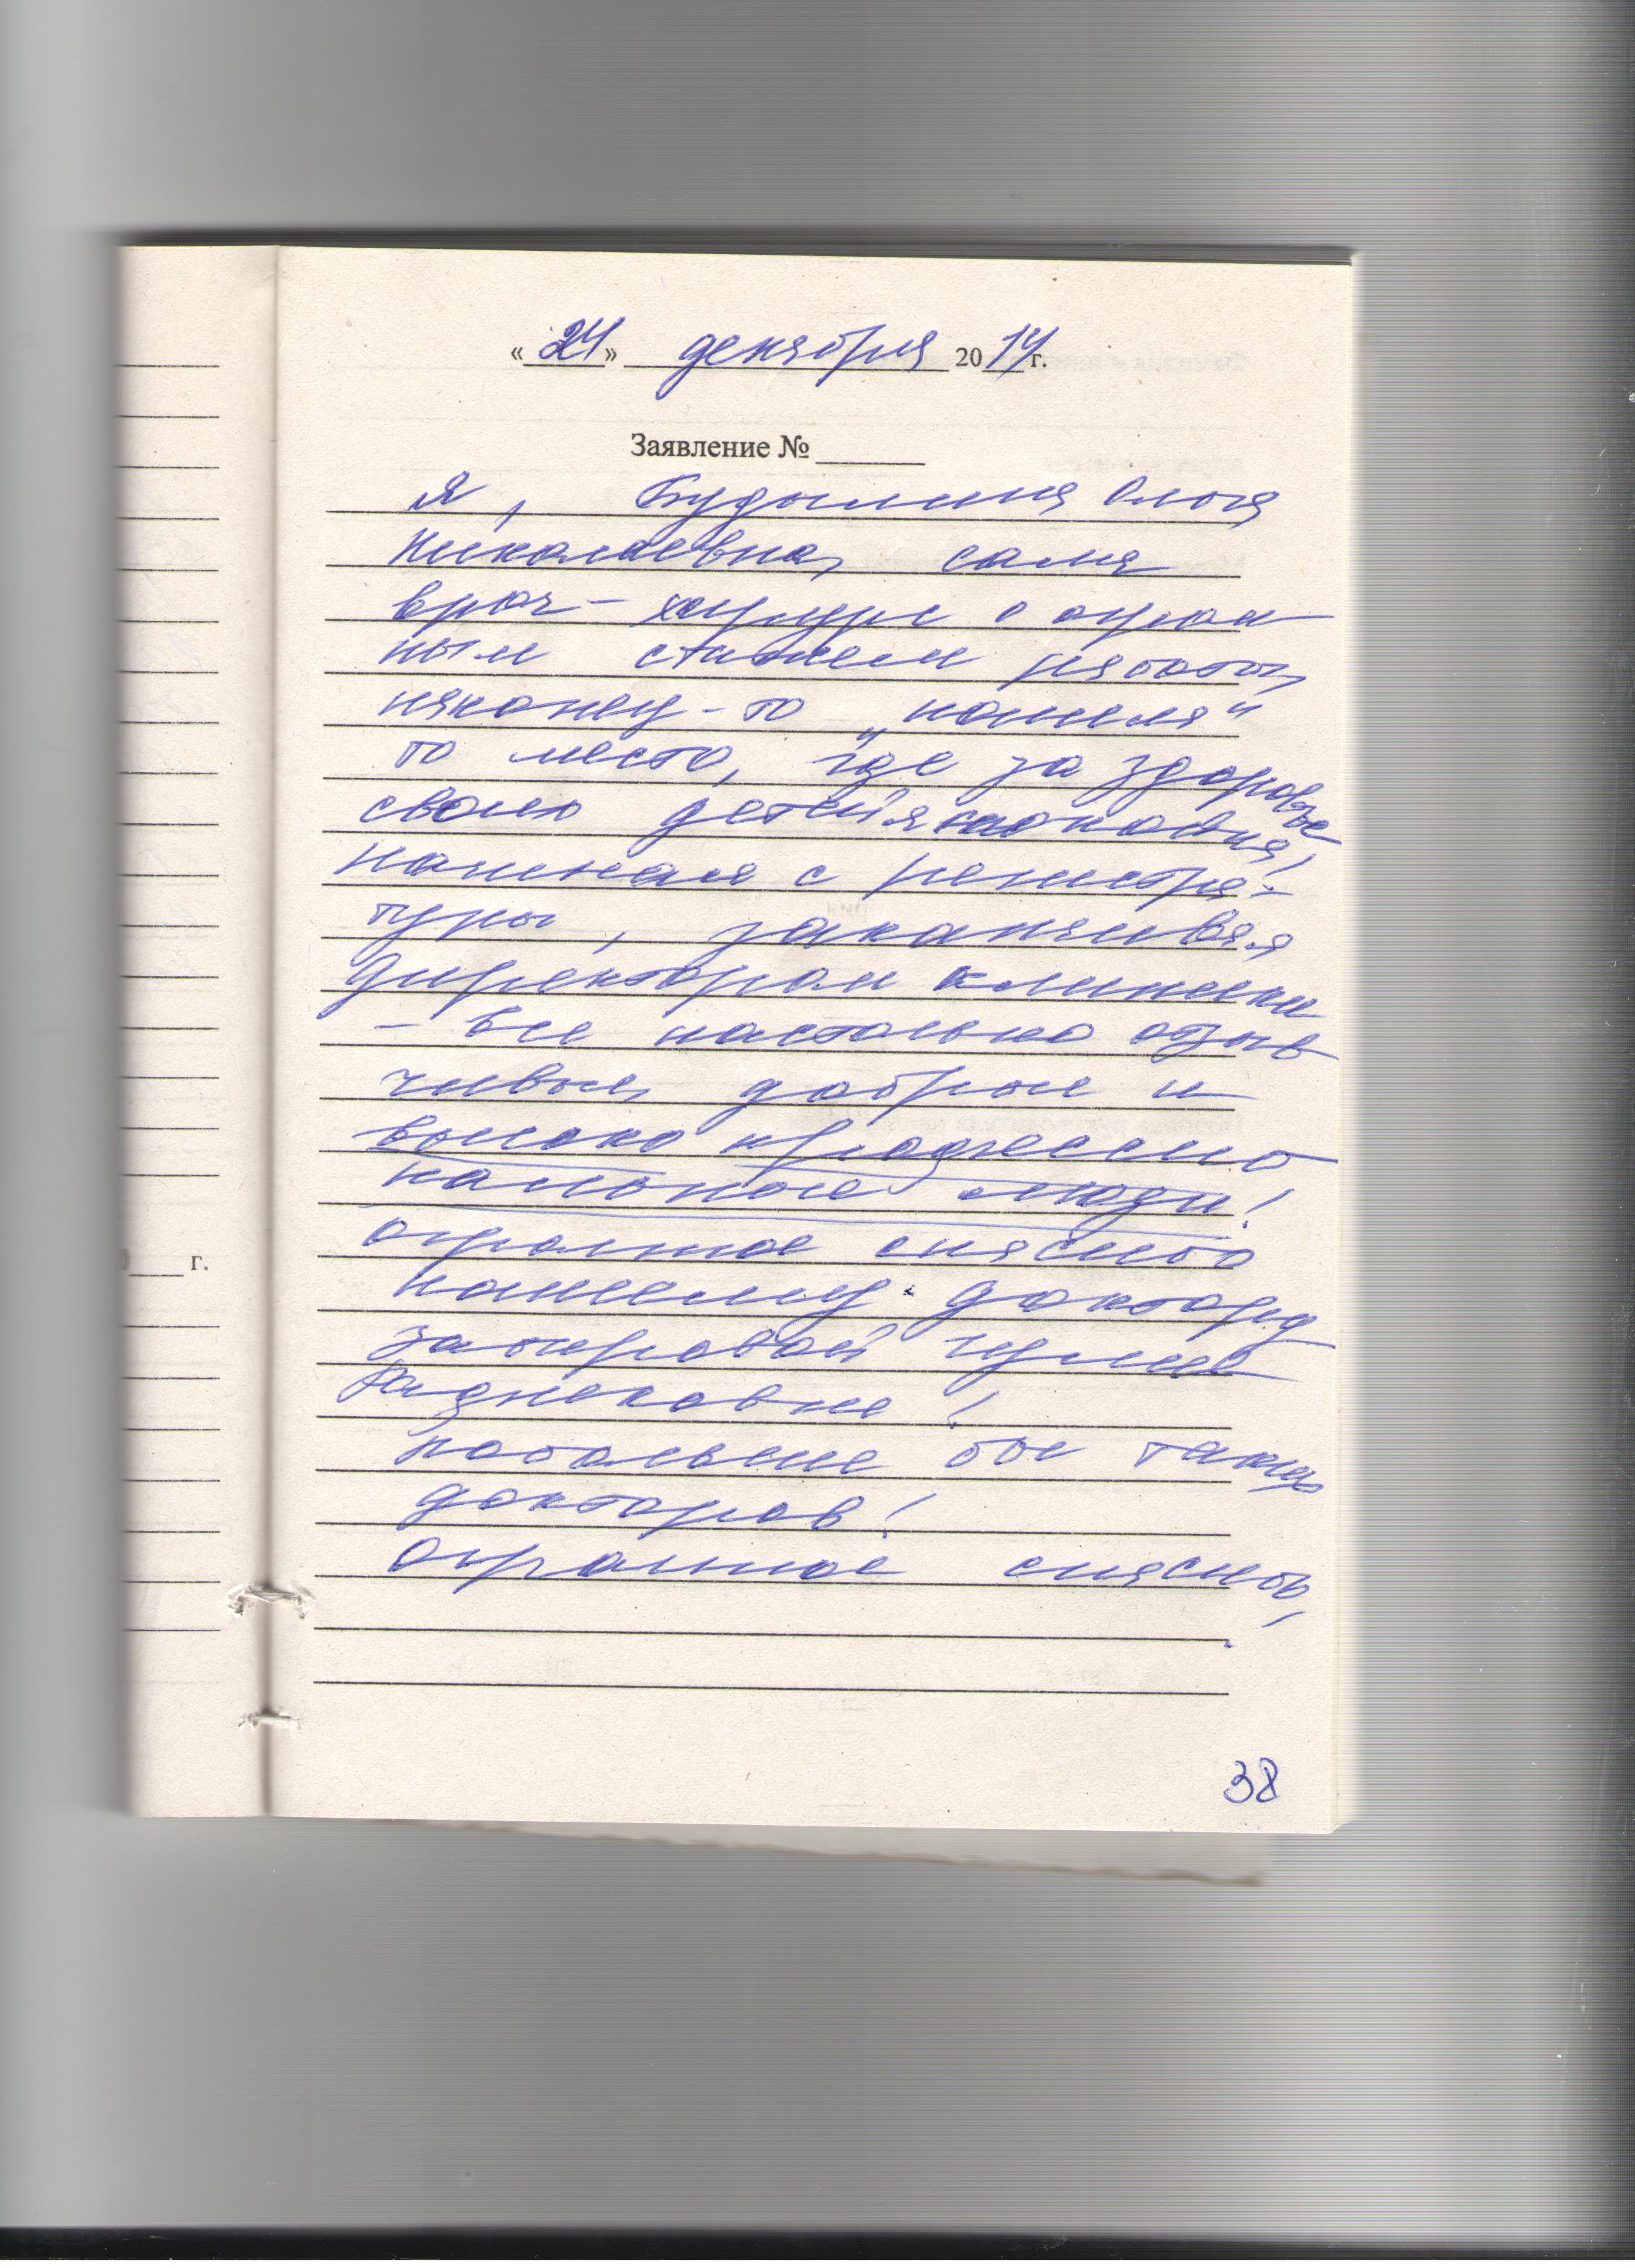 «24» декабря 2014г.
Заявление №
Я, Будылина Ольга
Николаевна, сама
врач-хирург с огром
ным стажем работы,
наконец-то „нашла"
то место, где за здоровье
своих детей я спокойна!
Начиная с регистра-
туры, заканчивая
директором клиники
- все настолько отзыв
чивые, добрые и
высоко профессио
нальные люди!
Огромное спасибо
нашему доктору
!
Побольше бы таких
докторов!
Огромное спасибо,
38
г.